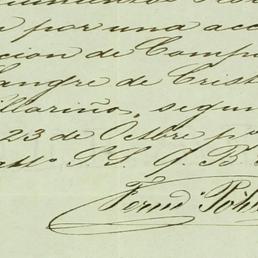 por una acc
cion de Comp
Sangre de Crist
illariño, segun
23 de Octbre p
S. S. Q. B.
Fernd Pöh